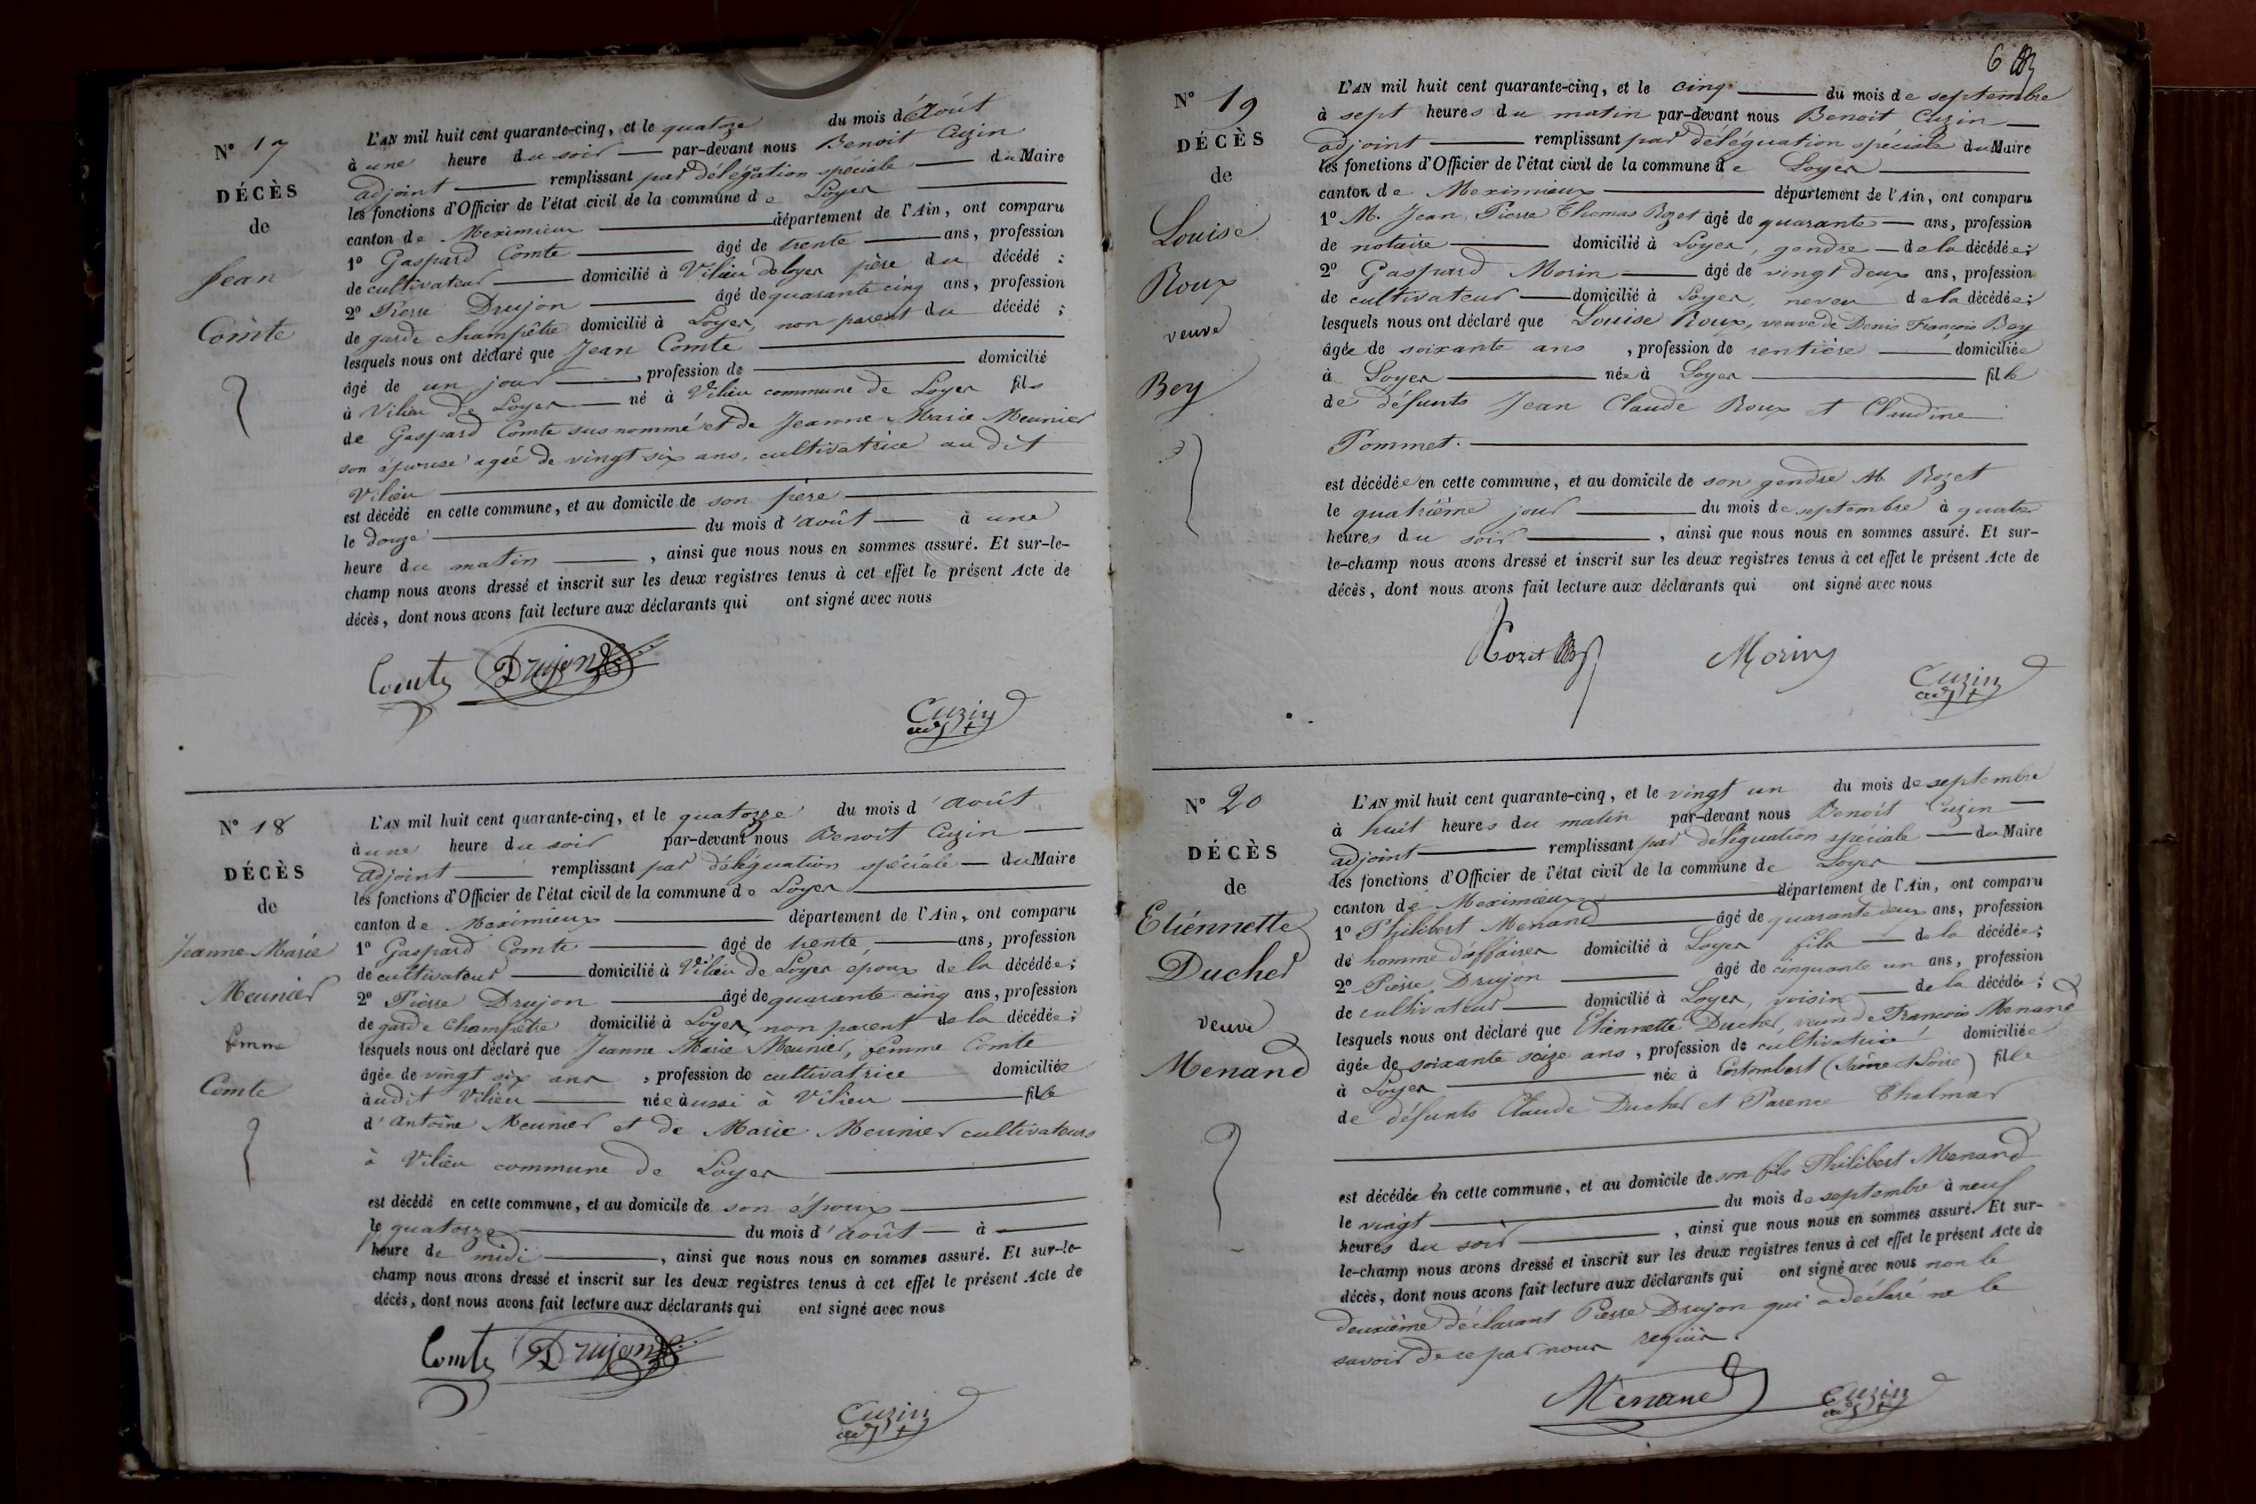 N° 17
DÉCÈS
de
Jean
Comte
L'AN mil huit cent quarante-cinq, et le quatorze du mois d'Août
à une heure du soir par-devant nous Benoit Cuzin
adjoint remplissant par délégation spéciale du Maire
les fonctions d'Officier de l'état civil de la commune de Loyes
canton de Meximieux département de l'Ain, ont comparu
1° Gaspard Comte âgé de trente ans, profession
de cultivateur domicilié à Vilieu de loyes père du décédé ;
2° Pierre Drujon âgé de quarante cinq ans, profession
de garde champêtre domicilié à Loyes, non parent du décédé ;
lesquels nous ont déclaré que Jean Comte
âgé de un jour, profession de domicilié
à Vilieu de Loyes né à Vilieu commune de Loyes fils
de Gaspard Comte susnommé et de Jeanne Marie Meunier
son épouse agée de vingt six ans, cultivatrice au dit
Vilieu
est décédé en cette commune, et au domicile de son père
le douze du mois d'août à une
heure du matin, ainsi que nous nous en sommes assuré. Et sur-le-
champ nous avons dressé et inscrit sur les deux registres tenus à cet effet le présent Acte de
décès, dont nous avons fait lecture aux déclarants qui ont signé avec nous
Comte Drujon
Cuzin
adjt
N° 18
DÉCÈS
de
Jeanne Marie
Meunier
femme
Comte
L'AN mil huit cent quarante-cinq, et le quatorze du mois d'août
à une heure du soir par-devant nous Benoit Cuzin
adjoint remplissant par délégation spéciale du Maire
les fonctions d'Officier de l'état civil de la commune de Loyes
canton de Meximieux département de l'Ain, ont comparu
1° Gaspard Comte âgé de trente ans, profession
de cultivateur domicilié à Vilieu de Loyes époux de la décédée ;
2° Pierre Drujon âgé de quarante cinq ans, profession
de garde champêtre domicilié à Loyes, non parent de la décédée ;
lesquels nous ont déclaré que Jeanne Marie Meunier, femme Comte
âgée de vingt six ans, profession de cultivatrice domiciliée
audit Vilieu née aussi à Vilieu fille
d'Antoine Meunier et de Marie Meunier cultivateurs
à Vilieu commune de Loyes
est décédé en cette commune, et au domicile de son époux
le quatorze du mois d'août à
heure de midi, ainsi que nous nous en sommes assuré. Et sur-le-
champ nous avons dressé et inscrit sur les deux registres tenus à cet effet le présent Acte de
décès, dont nous avons fait lecture aux déclarants qui ont signé avec nous
Comte Drujon
Cuzin
adjt
6
N° 19
DÉCÈS
de
Louise
Roux
veuve
Bey
L'AN mil huit cent quarante-cinq, et le cinq du mois de septembre
à sept heures du matin par-devant nous Benoit Cuzin
adjoint remplissant par déléguation spéciale du Maire
les fonctions d'Officier de l'état civil de la commune de Loyes
canton de Meximieux département de l'Ain, ont comparu
1° M. Jean Pierre Thomas Rozet âgé de quarante ans, profession
de notaire domicilié à Loyes, gendre de la décédée ;
2° Gaspard Morin âgé de vingt deux ans, profession
de cultivateur domicilié à Loyes, neveu de la décédée ;
lesquels nous ont déclaré que Louise Roux, veuve de Denis François Bey
âgée de soixante ans, profession de rentière domiciliée
à Loyes née à Loyes fille
de défunts Jean Claude Roux et Claudine
Pommet.
est décédée en cette commune, et au domicile de son gendre M. Rozet
le quatrième jour du mois de septembre à quatre
heures du soir, ainsi que nous nous en sommes assuré. Et sur-
le-champ nous avons dressé et inscrit sur les deux registres tenus à cet effet le présent Acte de
décès, dont nous avons fait lecture aux déclarants qui ont signé avec nous
Rozet Morin
Cuzin
adjt
N° 20
DÉCÈS
de
Etiennette
Ducher
veuve
Menand
L'AN mil huit cent quarante-cinq, et le vingt un du mois de septembre
à huit heures du matin par-devant nous Benoit Cuzin
adjoint remplissant par déléguation spéciale du Maire
les fonctions d'Officier de l'état civil de la commune de Loyes
canton de Meximieux département de l'Ain, ont comparu
1° Philibert Menand âgé de quarante deux ans, profession
de homme d'affaires domicilié à Loyes fils de la décédée ;
2° Pierre Drujon âgé de cinquante un ans, profession
de cultivateur domicilié à Loyes, voisin de la décédée ;
lesquels nous ont déclaré que Etiennette Ducher, veuve de François Menand
âgée de soixante seize ans, profession de cultivatrice domiciliée
à Loyes née à (Saône et Loire) fille
de défunts Claude Ducher et Thalmar
est décédée en cette commune, et au domicile de son fils Philibert Menand
le vingt du mois de septembre à neuf
heures du soir, ainsi que nous nous en sommes assuré. Et sur-
le-champ nous avons dressé et inscrit sur les deux registres tenus à cet effet le présent Acte de
décès, dont nous avons fait lecture aux déclarants qui ont signé avec nous non le
deuxième déclarant Pierre Drujon qui a déclaré ne le
savoir de ce par nous requis.
Menand Cuzin
adjt